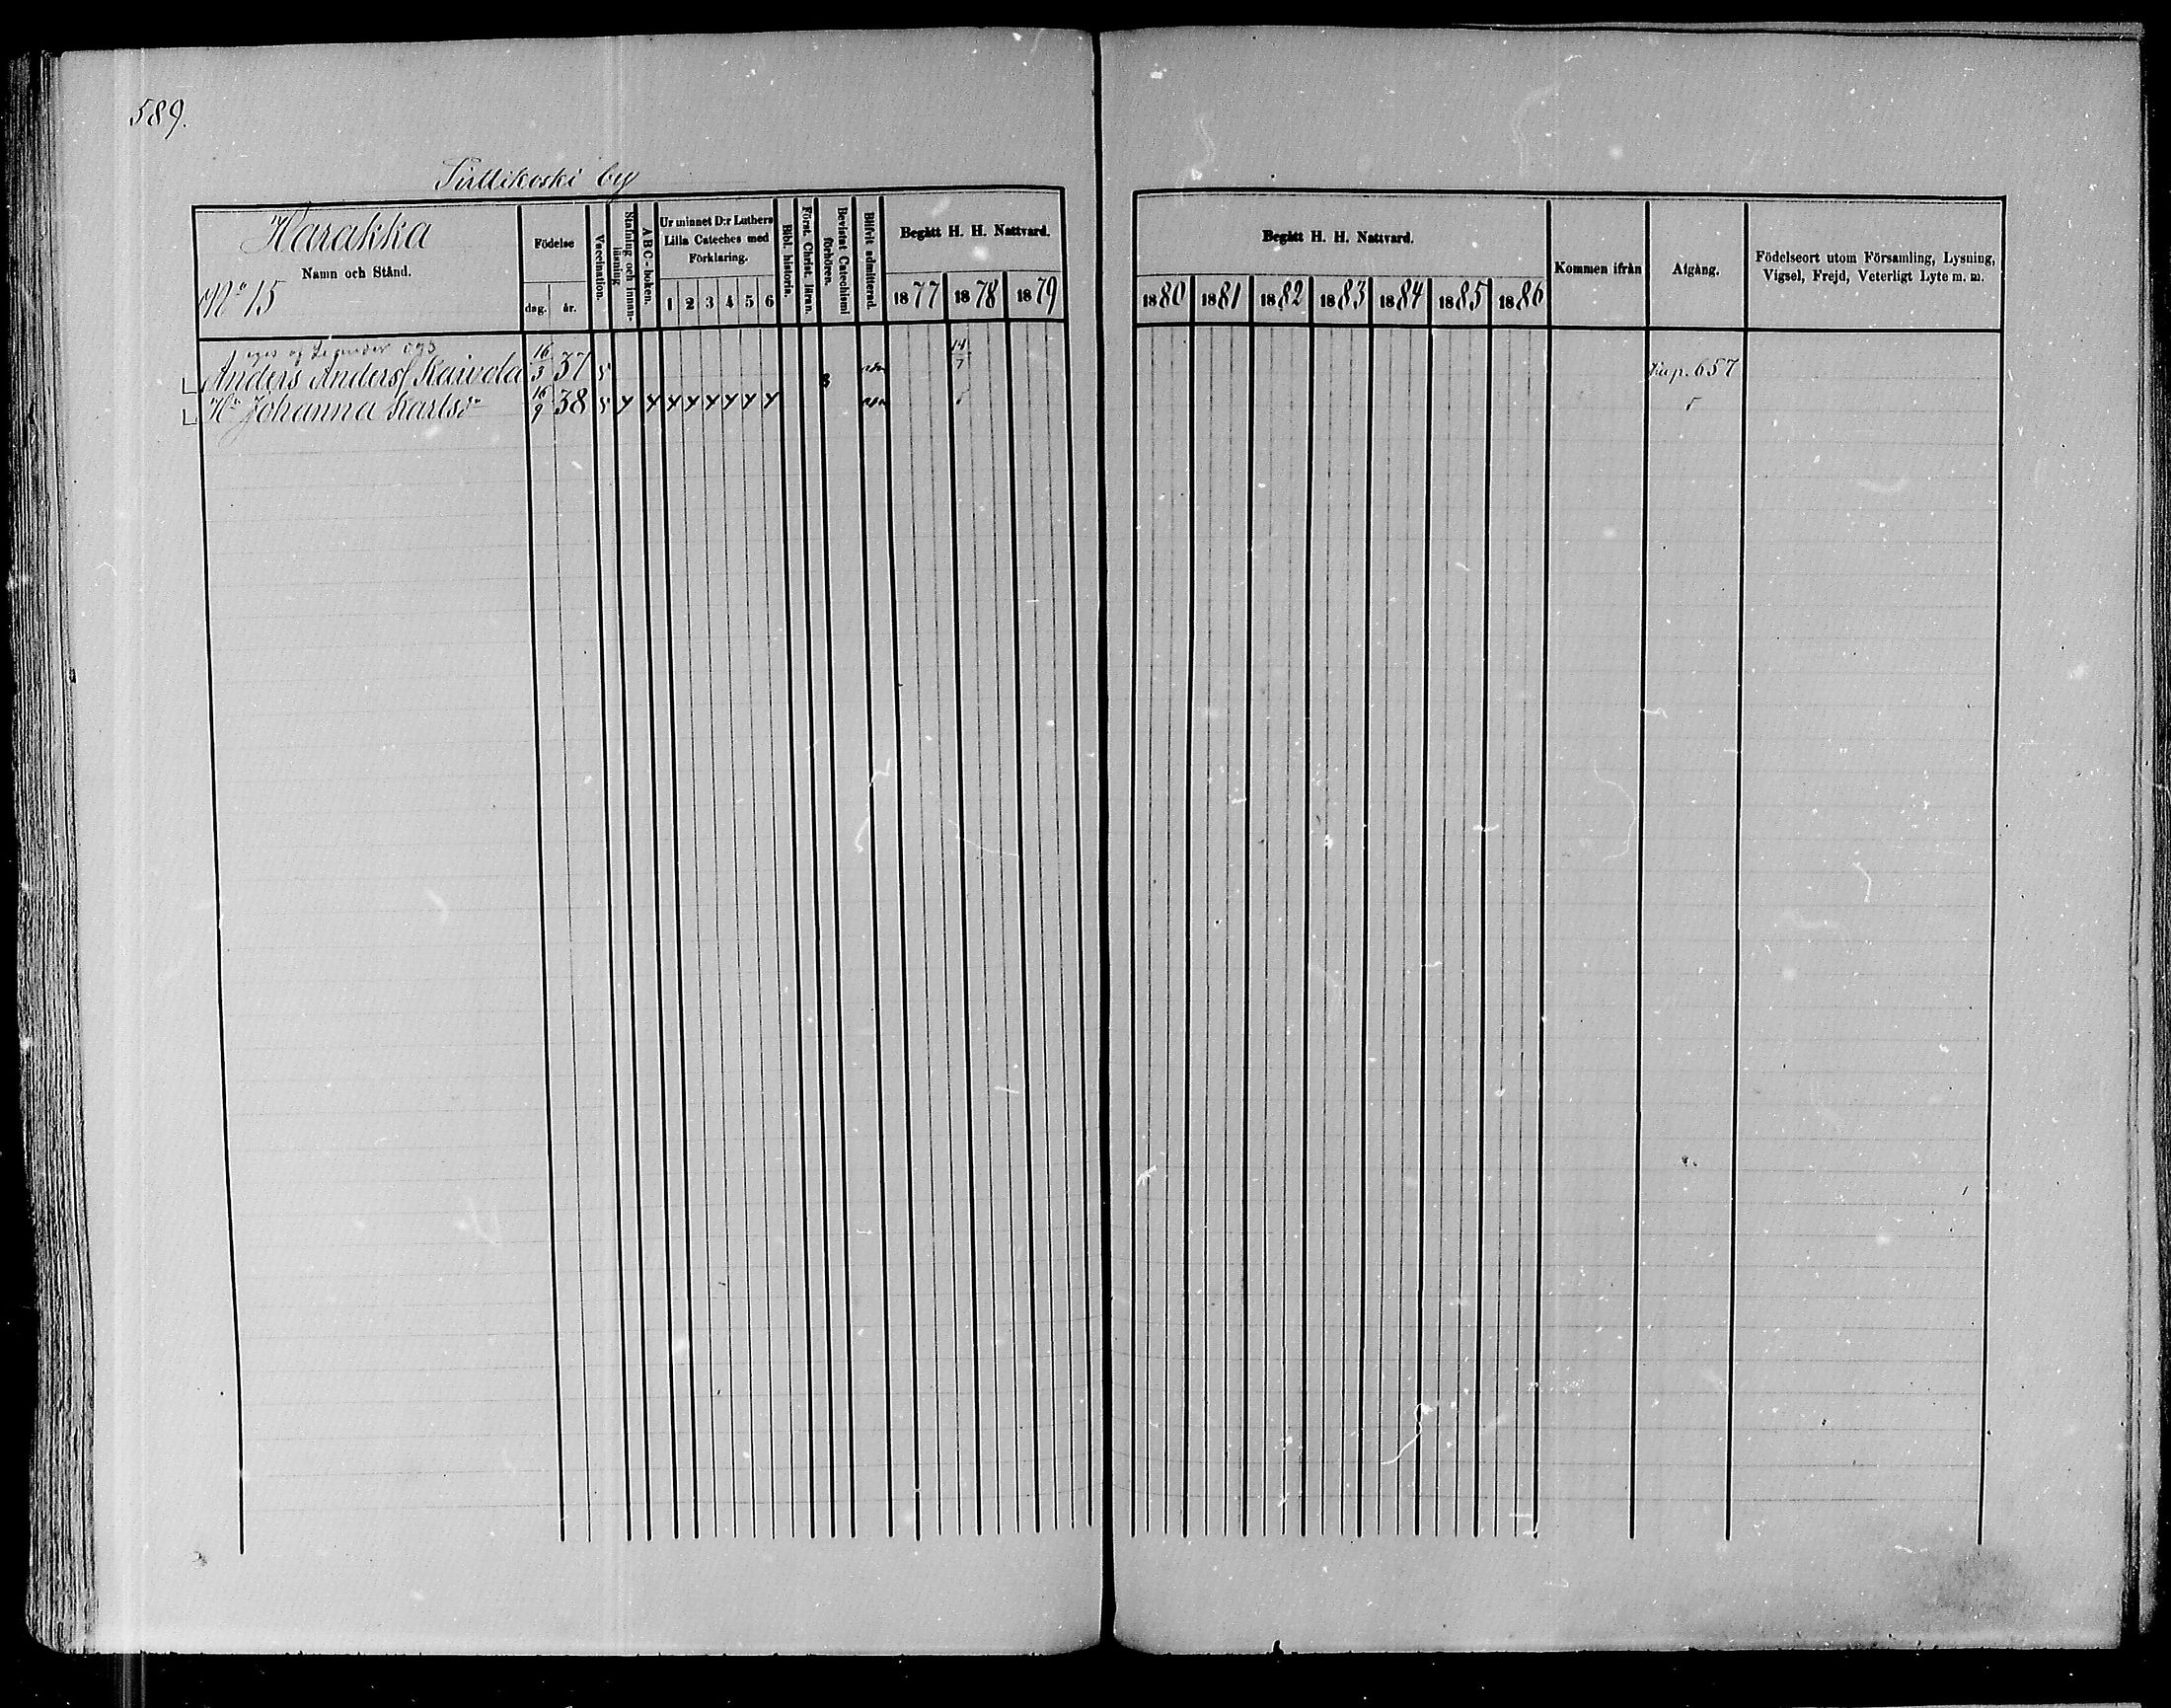 589.
Sirttikoski by
Harakka
Namn och Stånd.
No 15
Födelse
dag. år.
Vaccination.
Stafning och innanläsning
A B C-boken.
Ur minnet D:r Luthers
Lilla Cateches med
Förklaring.
1 2 3 4 5 6
Bibl. historia.
Först. Christ. läran.
Bevistat Catechismi
förhören.
Blifvit admitterad.
Begått H. H. Nattvard.
1877 1878 1879
Begått H. H. Nattvard.
1880 1881 1882 1883 1884 1885 1886
Kommen ifrån
Afgång.
Födelseort utom Församling, Lysning,
Vigsel, Frejd, Veterligt Lyte m. m.
Anders Anderss Kaivola 16/3 37 14/7 657
Hu Johanna Karlsdr 16/9 38